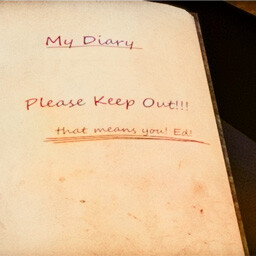 My Diary
Please Keep Out!!!
that means you! Ed!